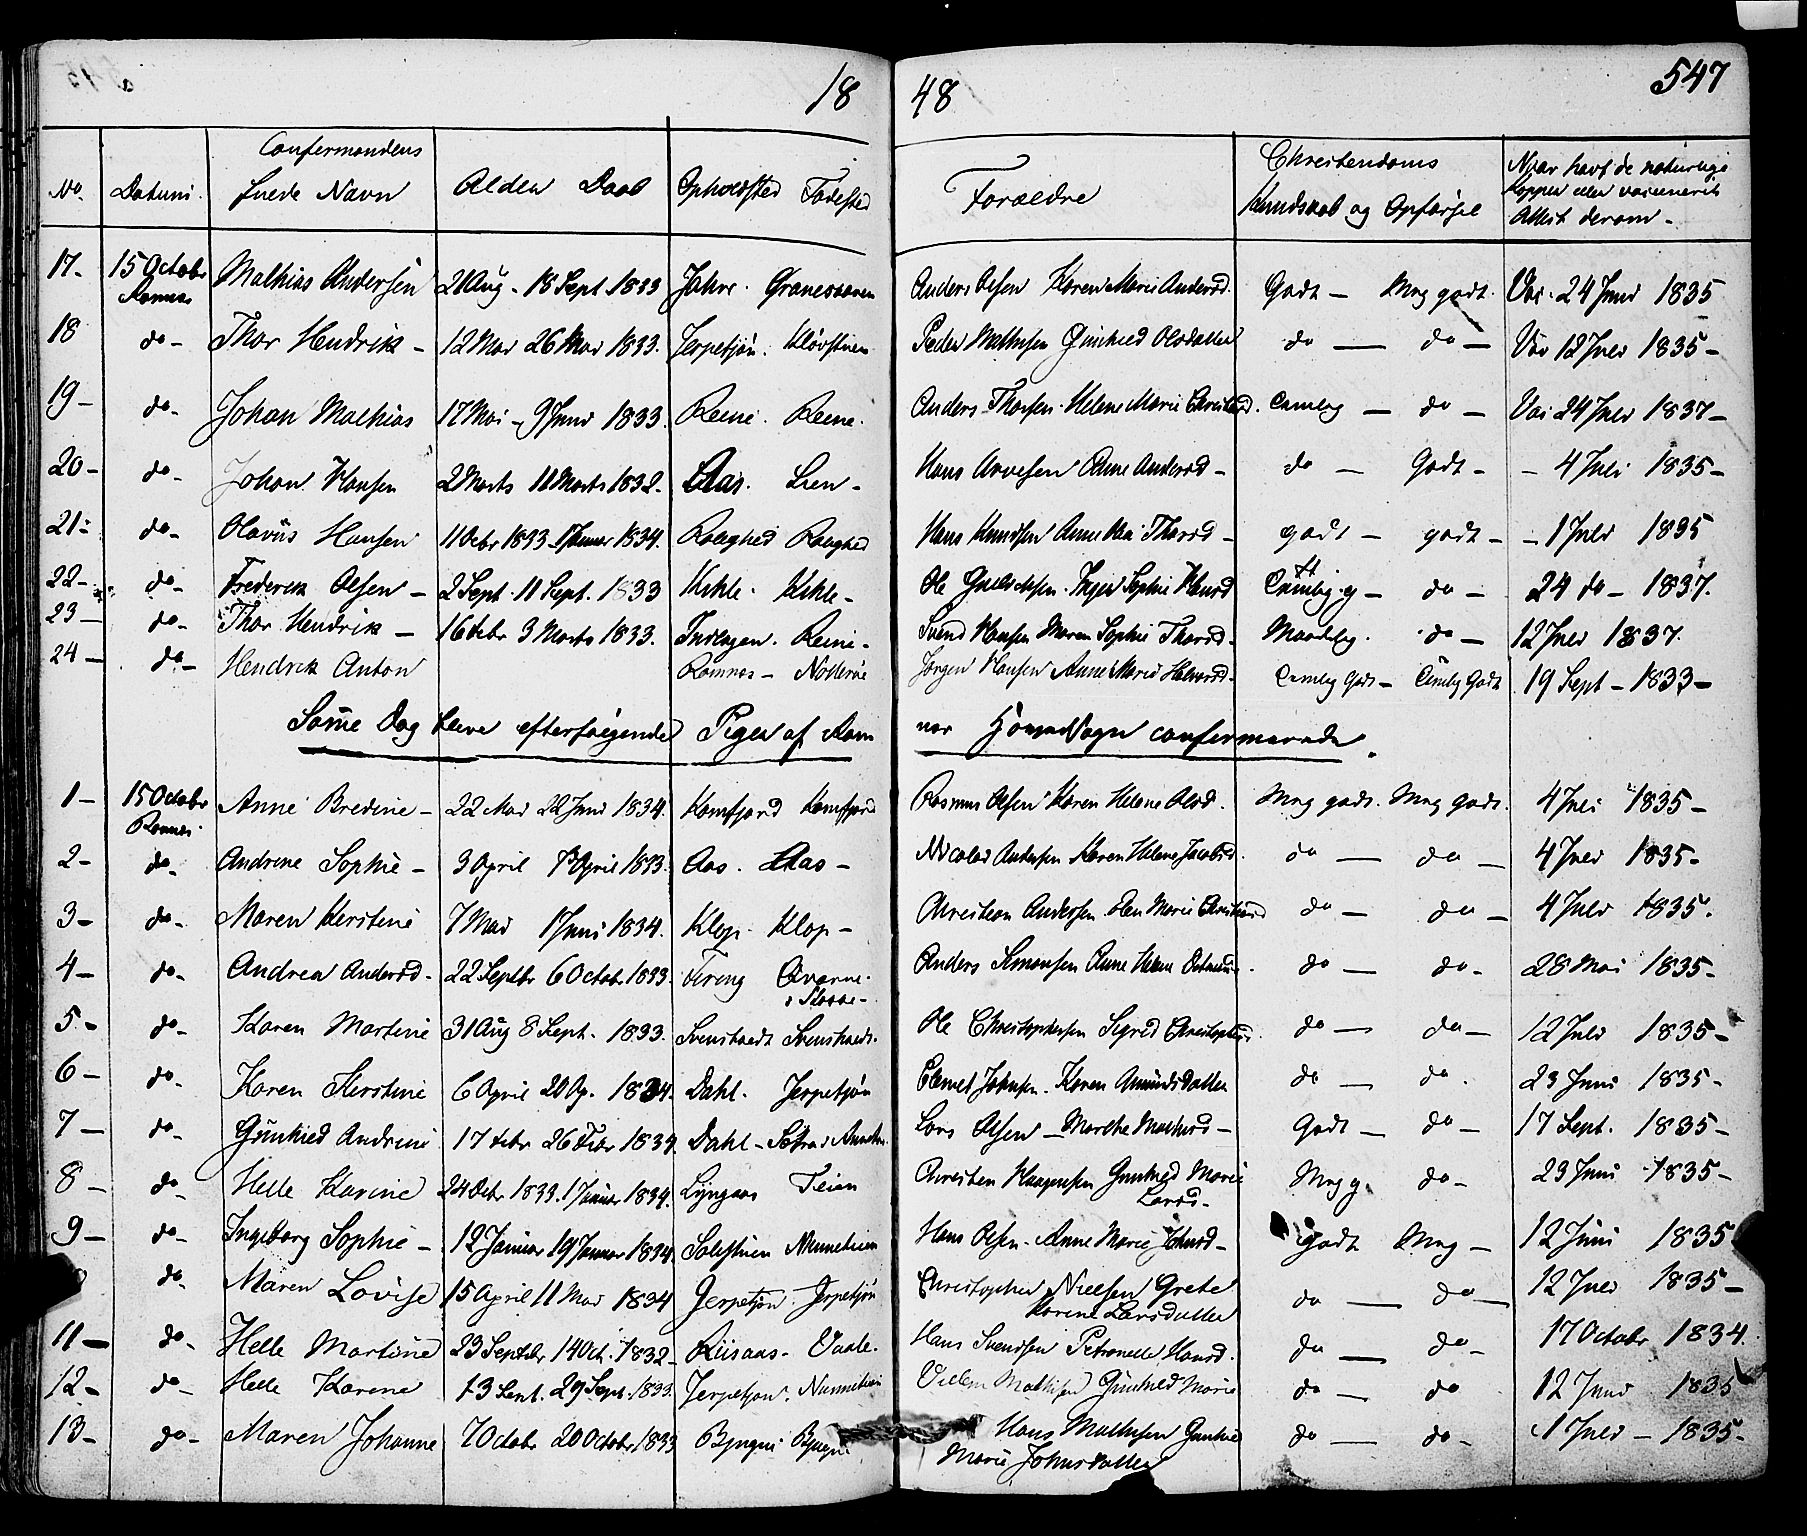 18 48 547
No. Datum. Confermandens fulde Navn Alder Daab Opholdsted Fødested Forældre Christendoms Kundskab og Opførsel Naar havt de naturlige Kopper eller vaccinerit Attest derom -
17- 15 Octobr Ramnæs Mathias Andersen 21 Aug - 18 Sept 1833 Jahre. Anders Olsen Karen Marie Andersd. Godt - Mrg godt. Vac. 24 Juni 1835
18 do - Thor Hendrik - 12 Mai 26 Mai 1833. Jerpetjøn. Peder Mathisen Gunhild Olsdatter do - do - Vac 12 Juli 1835 -
19 - do - Johan Mathias 17 Mai - 9 Juni 1833. Reine. Reine. Anders Thorsen. Helene Marie do - Vac 24 Juli 1837 -
20 - do - Johan Hansen 2 Marts 11 Marts 1832 - Aas. Lien - Hans Arvesen Anne Andersd - do - Godt - - 4 Juli 1835 -
21 - do - Olavus Hansen 11 Octbr 1833 - 1 Januar 1834. Hans Knudsen Anne Mai Thorsd - godt - godt - - 1 Juli 1835
22 - do - Frederik Olsen - 2 Sept. 11 Sept. 1833 Kihle. Kihle - Ole Inger Sophie Hansd do - 24 do - 1837.
23 - do - Thor Hendrik - 16 Febr 3 Marts 1833. Reine - Svend Hansen Maren Sophie Thorsd - Maadelig. do - 12 Juli 1837.
24 - do - Hendrik Anton Ramnæs - Nøtterøe Jørgen Hansen Anne Marie Halvorsd - 19 Sept - 1833 -
Samme Dag bleve efterfølgende Piger af Ramnæs Hoved Sogn confermerede.
1 - 15 Octobr Ramnæs Anne Bredine - 22 Mai 22 Juni 1834. Rasmus Olsen Karen Helene Olsd. Mrg godt. Mrg godt. 4 Juli 1835 -
2 - do - Andrine Sophie - 3 April April 1833. Aas. Aas - Nicolai Andersen Karen Helene Jacobsd. do - do - 4 Juli 1835 -
3 - do - Maren Kirstine 7 Mai 1 Juni 1834. Klop. Klop - Christian Andersen. Marie do - do - 4 Juli 1835.
4 - do - Andrea Andersd. 22 Septbr 6 Octobr 1833. Anders Simonsen Anne Helene do - do - 28 Mai 1835 -
5 - do - Karen Martine 31 Aug 8 Sept. 1833. Ole Christophersen Sigrid do - do - 12 Juli 1835 -
6 - do - Karen Kirstine 6 April 20 Ap. 1834. Dahl. Jerpetjøn Clemet Johnsen. Karen Amundsdatter do - do. 23 Juni 1835 -
7 - do - Gunhild Andrine 17 Febr 26 Febr 1834. Dahl - Lars Olsen - Marthe Mathisd - Godt - do - 17 Sept. 1835 -
8 - do - Helle Karine 24 Octbr 1833. 1 Januar 1834. Lyngaas Teien Christen Gunhild Marie Larsd - Mrg g. do - 23 Juni 1835 -
9 - do - Ingeborg Sophie - 12 Januar 19 Januar 1834. Hans Olsen. Anne Marie Johnsd - Godt Mrg - 12 Juni 1835
do - Maren Lovise 15 April 11 Mai 1834 Jerpetjøn. Jerpetjøn Christopher Nielsen Grete Karine Larsdatter do - do - 12 Juli 1835 -
11 - do - Helle Martine 23 Septbr 14 Oct. 1832 - Riisaas - Vaale. Hans Svendsen Petronelle Hansd. do - do - 17 Octobr 1834.
12 - do - Helle Karine 13 Sept. 29 Sept. 1833. Jerpetjøn. Mathisen Gunhild Marie do - do 12 Juni 1835
13 - do - Maren Johanne 7 Octobr 20 Octobr 1833 Hans Mathisen Gunhild Marie Johnsdatter do - do - 1 Juli - 1835 -